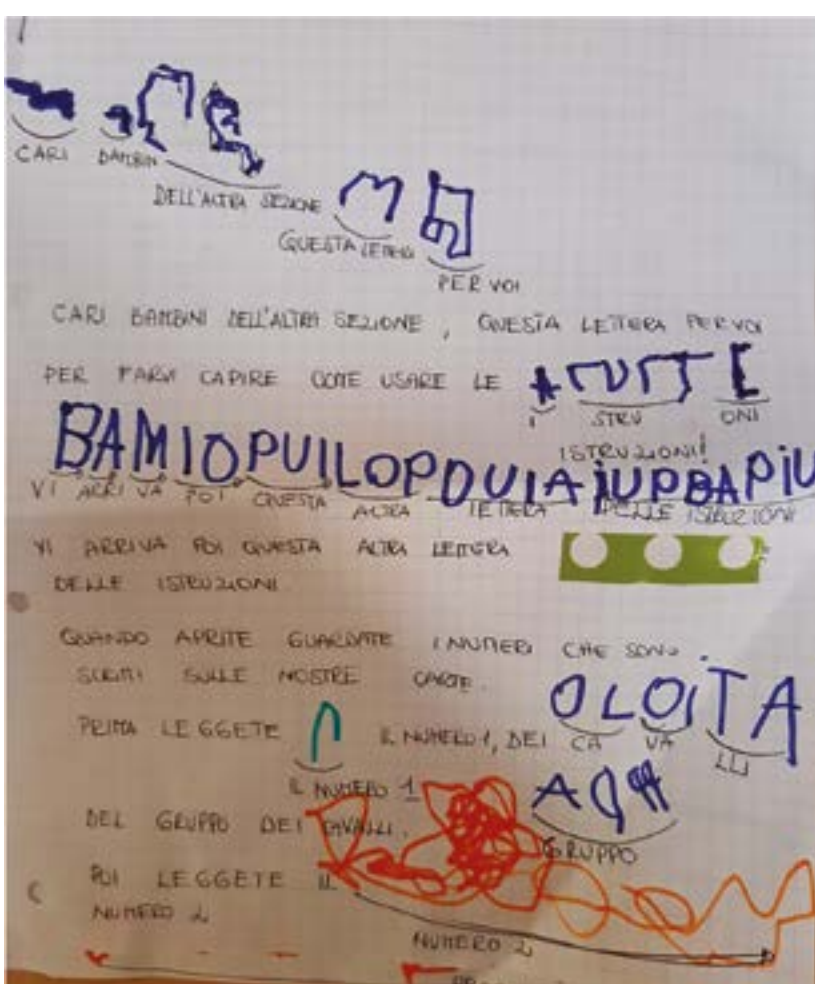 CARI BAMBIN
DELL'ALTRA SEZIONE
QUESTA LETTERA
PER VOI
CARI BAMBINI DELL'ALTRA SEZIONE, QUESTA LETTERA PER VOI
PER FARVI CAPIRE COME USARE LE
I STRU ONI
ISTRUZIONI!
BAMIOPUILOPDUIAIUPBAPIU
VI ARRI VA POI QUESTA ALTRA LETTERA DELLE ISTRUZIONI
VI ARRIVA POI QUESTA ALTRA LETTERA
DELLE ISTRUZIONI.
QUANDO APRITE GUARDATE I NUMERI CHE SONO
SCRITTI SULLE NOSTRE CARTE.
OLOITA
PRIMA LEGGETE IL NUMERO 1, DEI CA VA LLI
IL NUMERO 1
DEL GRUPPO DEI CAVALLI.
GRUPPO
POI LEGGETE IL
NUMERO 2
NUMERO 2